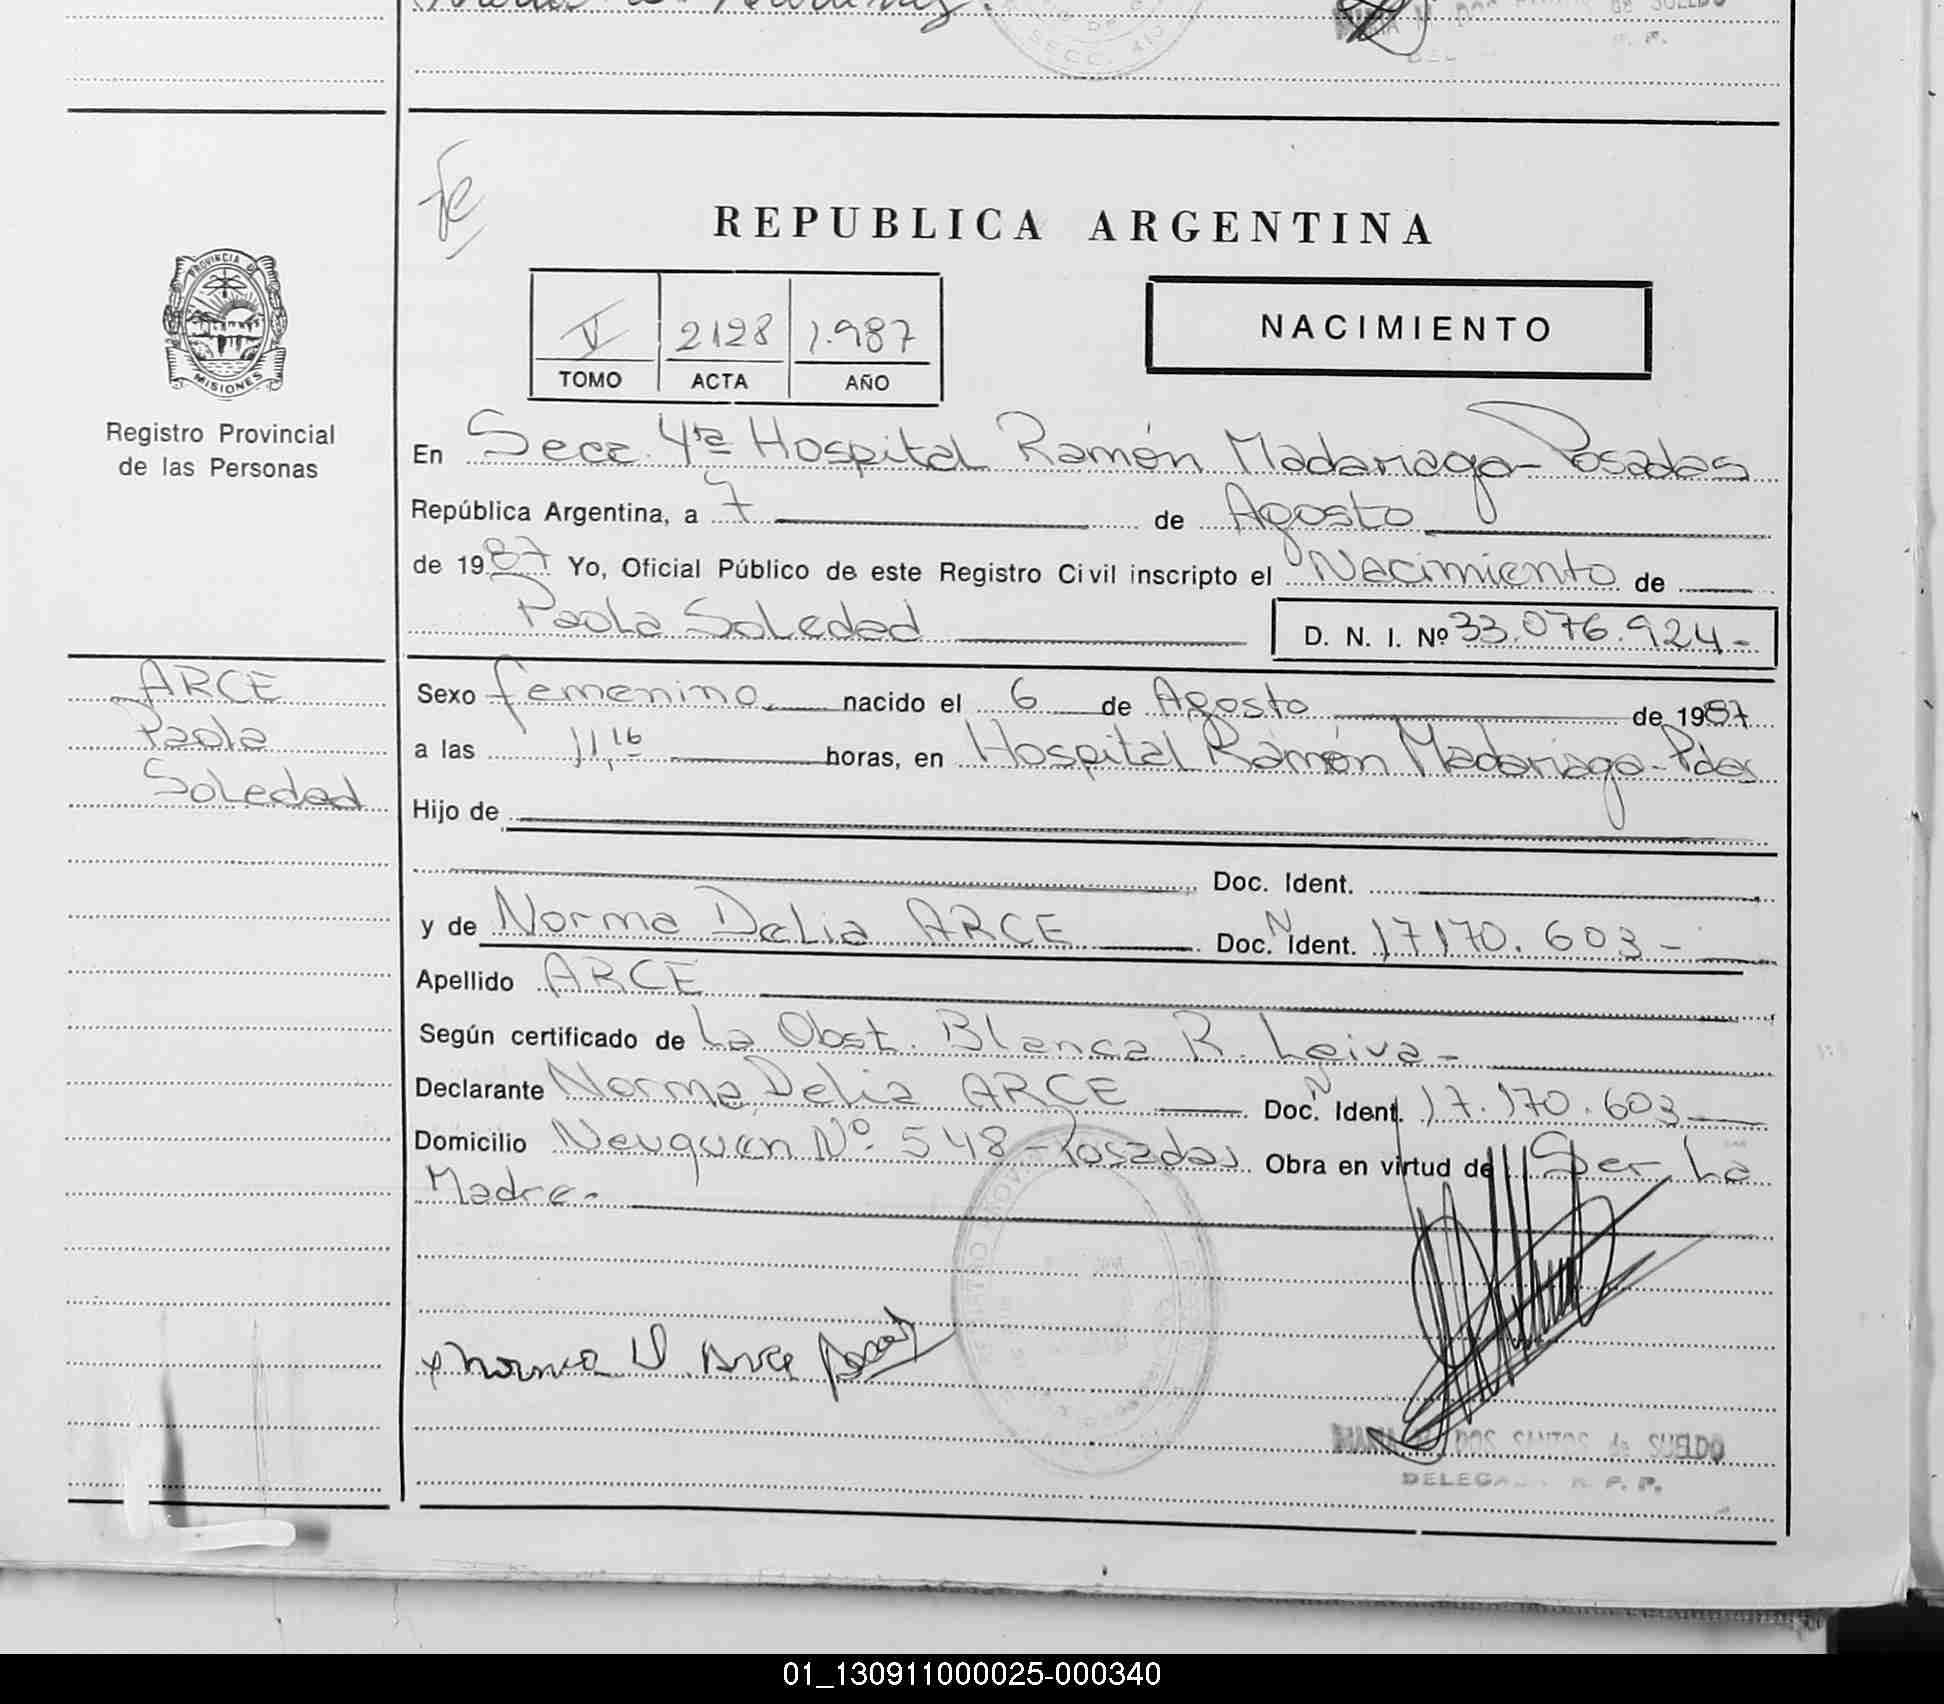 SECC. 4ta
REPUBLICA ARGENTINA
PROVINCIA DE
MISIONES
Registro Provincial
de las Personas
NACIMIENTO
V 2128 1.987
TOMO ACTA AÑO
En Secc. 4ta Hospital Ramón Madariaga - Posadas
República Argentina, a 7 de Agosto
de 1987 Yo, Oficial Público de este Registro Civil inscripto el Nacimiento de
Paola Soledad D. N. I. Nº 33.076.924-
ARCE
Paola
Soledad
Sexo femenino nacido el 6 de Agosto de 1987
a las 11,16 horas, en Hospital Ramón Madariaga - Pdas
Hijo de
Doc. Ident.
y de Norma Delia ARCE Doc. N Ident. 17.170.603-
Apellido ARCE
Según certificado de La Obst. Blanca R. Leiva-
Declarante Norma Delia ARCE Doc. N Ident. 17.170.603
Domicilio Neuquen Nº 548 - Posadas Obra en virtud de Ser La
Madre.-
Norma D. Arce
MARIA DOS SANTOS de SUELDO
DELEGADA R. P. P.
01_130911000025-000340